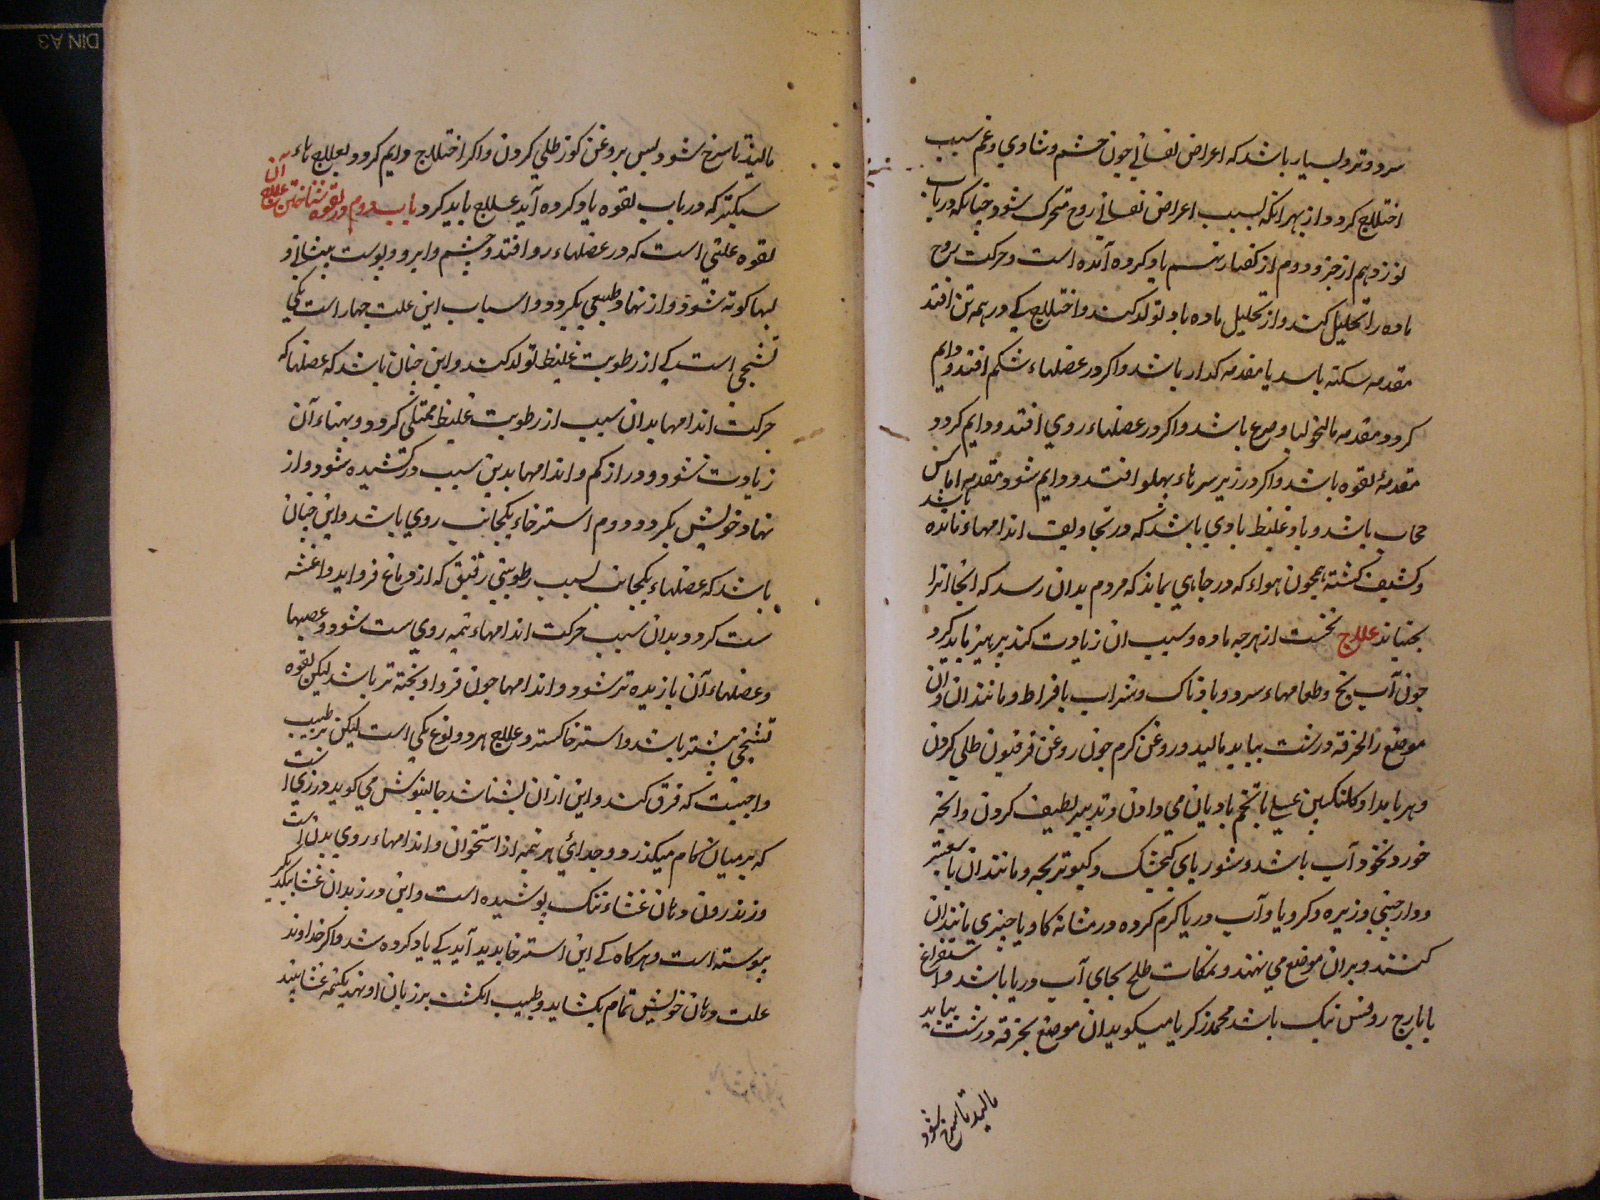 سرد و تر و بسیار باشد که اعراض نفسانی چون خشم و شادی و غم سبب
اختلاج کردد از بهر انکه بسبب اعراض نفسانی روح متحرک شود چنانکه در باب
نوزدهم از جزو دوم از کفتار یاد کرده آمده است و حرکت روح
ماده را تحلیل کند و از تحلیل ماده باد تولد کند و اختلاج کی در همه تن افتد
مقدمه سکته باشد یا مقدمه باشد و اکر در عضلهاء شکم افتد و دایم
کردد مقدمه مالیخولیا و صرع باشد و اکر در عضلهاء روی افتد و دایم کردد
مقدمهٔ لقوه باشد و اکر در زیر سرهاء پهلو افتد و دایم شود مقدمه اماس
حجاب باشد و باد غلیظ بادی باشد که در تجاویف اندامهاء مانده باشد
و کثیف کشته همچون هواء که در جاهی بماند که مردم بدان رسد که انجا انرا
بجنباند علاج نخست از هرچه ماده و سبب ان زیادت کند پرهیز باید کرد
چون آب یخ و طعامهاء سرد و بادناک و شراب بافراط و مانند ان و ان
موضع را بخرقه درشت بباید مالید و روغن کرم چون روغن فرفیون طلی کردن
و هر بامداد کلنکبین عسلی با تخم بادیان می دادن و تدبیر لطیف کردن و انچه
خورد نخود آب باشد و شوربای کنجشک و کبوتر بچه و مانند ان با سعتر
و دارچینی و زیره و کرویا و آب دریا کرم کرده در مثانه کاو یا چیزی مانند ان
کنند و بران موضع می نهند و نمکات طلح بجای آب دریا باشد و استفراغ
با یارج روفس نیک باشد محمد زکریا میکوید ان موضع بخرقه درشت بباید
مالید تا سرخ شود
مالید تا سرخ شود و پس بروغن کوز طلی کردن و اکر اختلاج دایم کردد بعلاج هاء
سبکتر که در باب لقوه یاد کرده آید علاج باید کرد باب دوم در لقوه شناختن علاج آن
لقوه علتی است که در عضلهاء رو افتد و چشم و ابرو و پوست پیشانی و
لبها کوته شود و از نهاد طبیعی بکردد و اسباب این علت چهار است یکی
تشنجی است کی از رطوبت غلیظ تولد کند و این چنان باشد که عضلها که
حرکت اندامها بدان سبب از رطوبت غلیظ ممتلی کردد و پهناء آن
زیادت شود و دراز کم و اندامها بدین سبب در کشیده شود و از
نهاد خویش بکردد دوم استرخاء یکجانب روی باشد و این چنان
باشد که عضلهاء یکجانب بسبب رطوبتی رقیق که از دماغ فرو اید و اغشته
سست کردد و بدان سبب حرکت اندامهاء نیمه روی سست شود و عصبها
و عضلهاء آن بازیده تر شود و اندامها چون فرو او پخته تر باشد لیکن لقوه
تشنجی بیشتر باشد و استرخا کمتر و علاج هر دو نوع یکی است لیکن بر طبیب
واجبست که فرق کند و این ازان بشناشد جالینوس می کوید درزی است
که بر میان کام میکذرد و جدائی هر نیمه از استخوان و اندامهاء روی بدان است
و زندرون دهان غشاء تنک پوشیده است و این درز بدان غشا
پیوسته است و هرکاه کی این استرخا پدید آید کی یاد کرده شد و اکر خداوند
علت دهان خویش تمام بکشاید و طبیب انکشت بر زبان او نهد یکنیمه غشا بیند